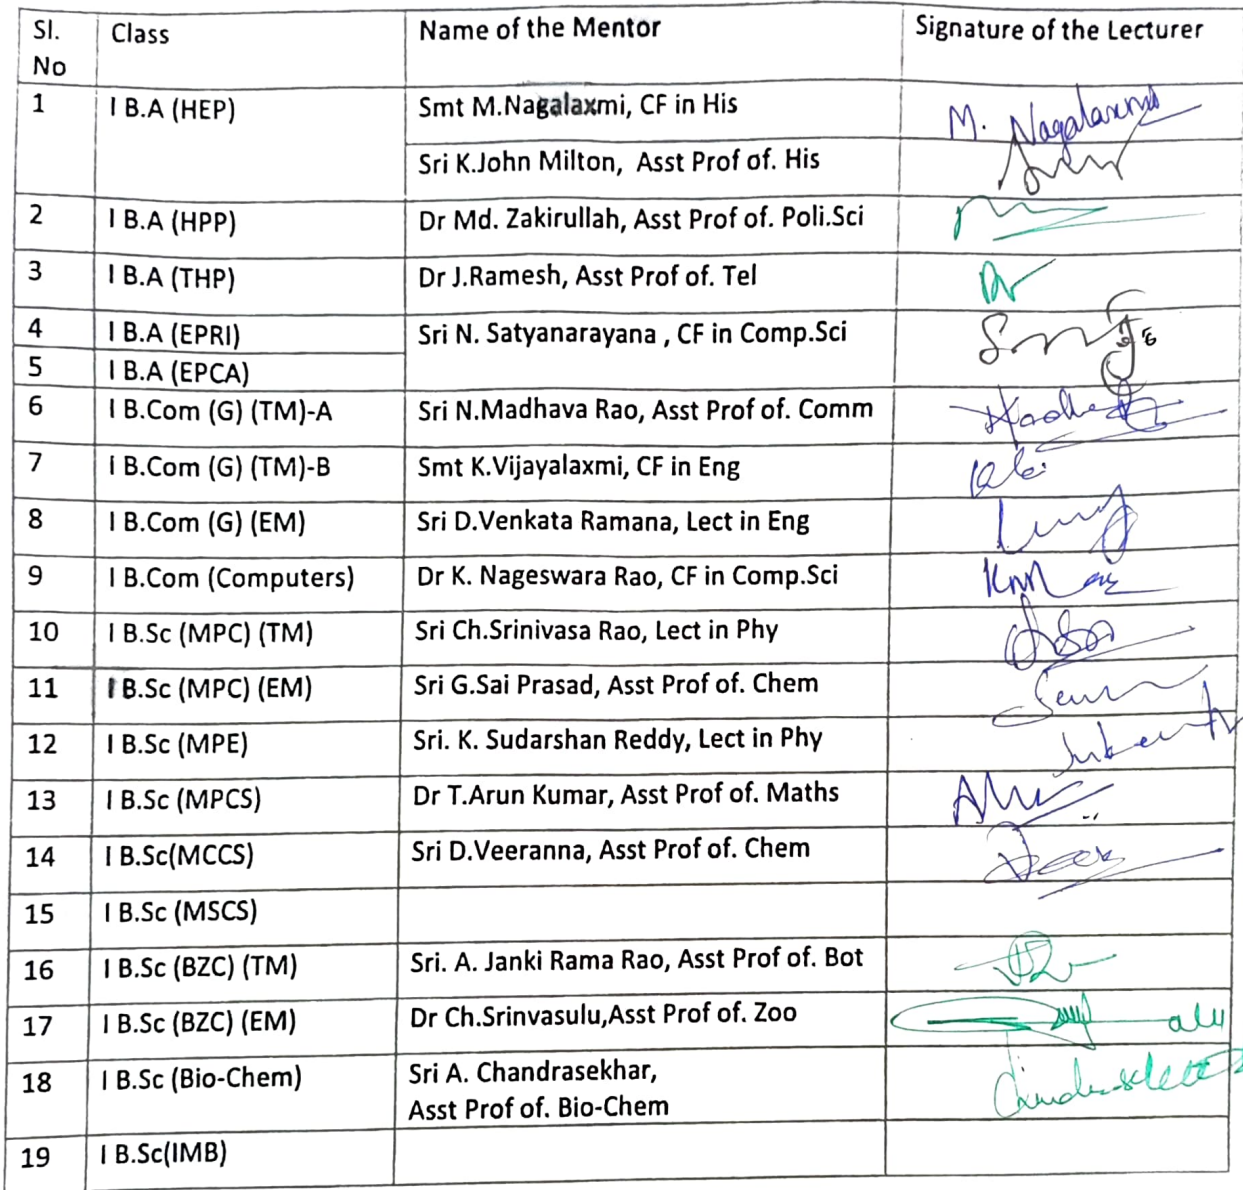 Sl. No Class Name of the Mentor Signature of the Lecturer
1 I B.A (HEP) Smt M.Nagalaxmi, CF in His M. Nagalaxmi
Sri K.John Milton, Asst Prof of. His
2 I B.A (HPP) Dr Md. Zakirullah, Asst Prof of. Poli.Sci
3 I B.A (THP) Dr J.Ramesh, Asst Prof of. Tel
4 I B.A (EPRI) Sri N. Satyanarayana , CF in Comp.Sci
5 I B.A (EPCA)
6 I B.Com (G) (TM)-A Sri N.Madhava Rao, Asst Prof of. Comm
7 I B.Com (G) (TM)-B Smt K.Vijayalaxmi, CF in Eng
8 I B.Com (G) (EM) Sri D.Venkata Ramana, Lect in Eng
9 I B.Com (Computers) Dr K. Nageswara Rao, CF in Comp.Sci
10 I B.Sc (MPC) (TM) Sri Ch.Srinivasa Rao, Lect in Phy
11 I B.Sc (MPC) (EM) Sri G.Sai Prasad, Asst Prof of. Chem
12 I B.Sc (MPE) Sri. K. Sudarshan Reddy, Lect in Phy
13 I B.Sc (MPCS) Dr T.Arun Kumar, Asst Prof of. Maths
14 I B.Sc(MCCS) Sri D.Veeranna, Asst Prof of. Chem
15 I B.Sc (MSCS)
16 I B.Sc (BZC) (TM) Sri. A. Janki Rama Rao, Asst Prof of. Bot
17 I B.Sc (BZC) (EM) Dr Ch.Srinvasulu,Asst Prof of. Zoo
18 I B.Sc (Bio-Chem) Sri A. Chandrasekhar,
Asst Prof of. Bio-Chem
19 I B.Sc(IMB)